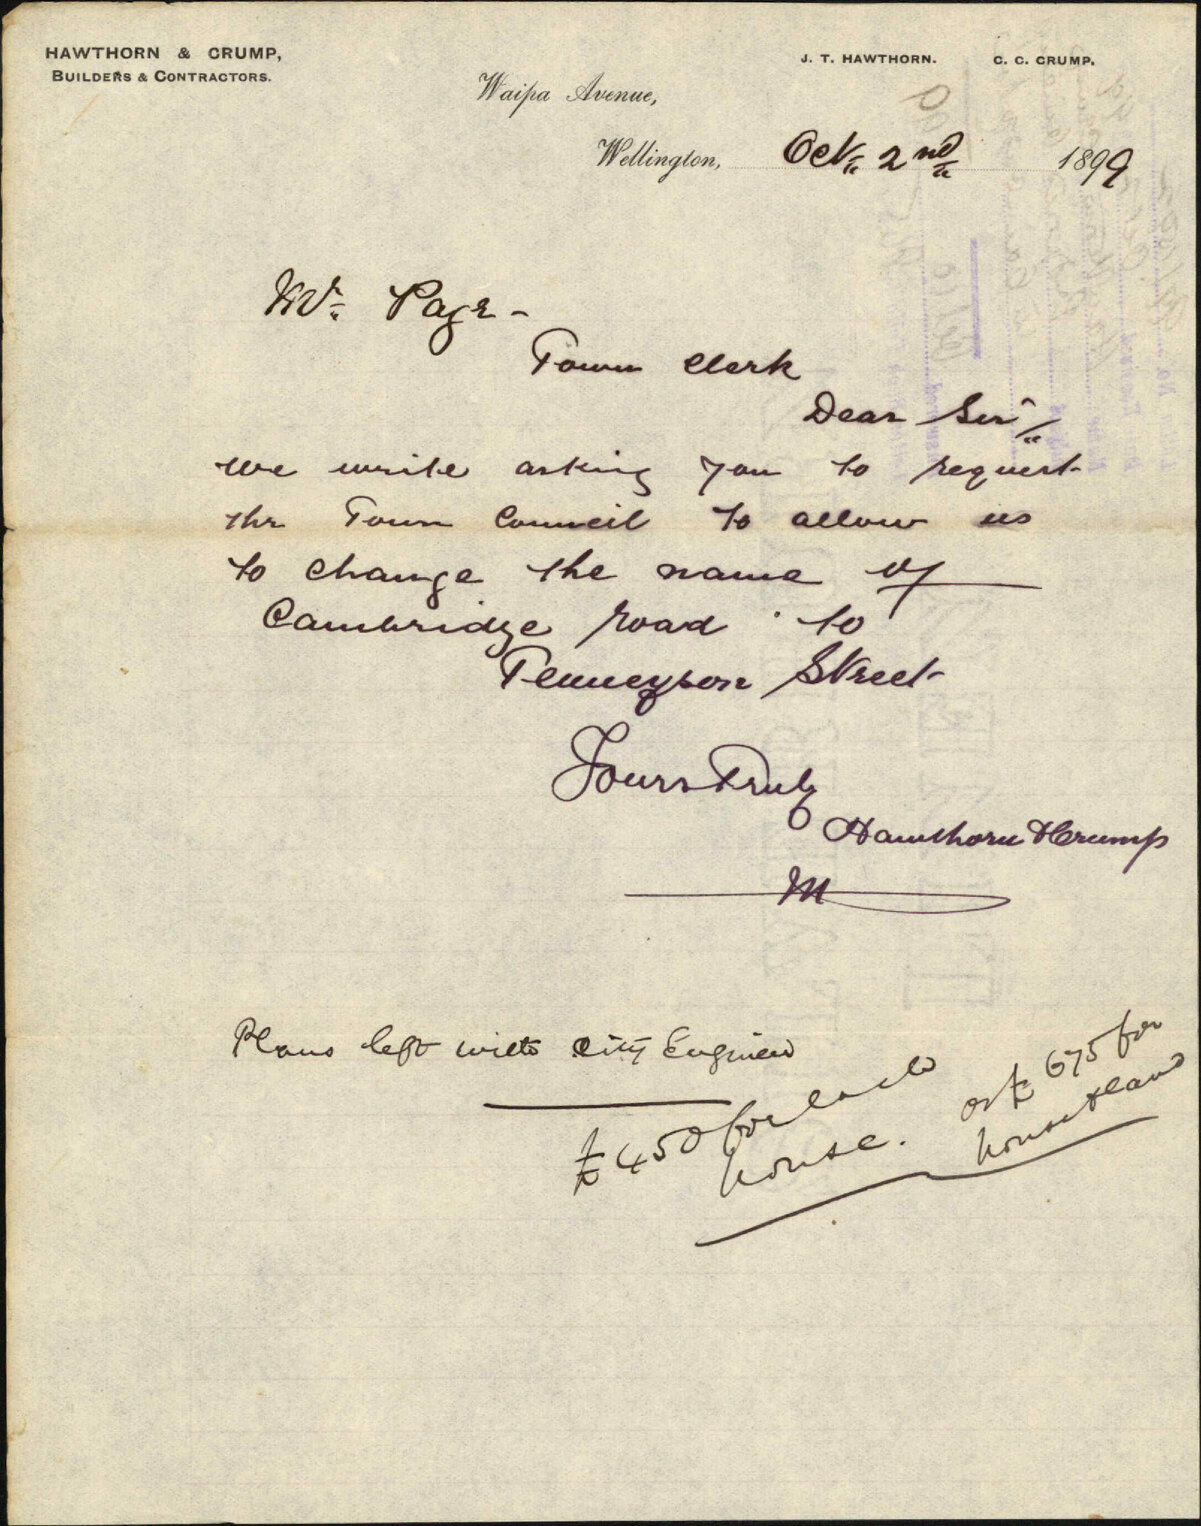 HAWTHORN & CRUMP,
BUILDERS & CONTRACTORS.
J. T. HAWTHORN. C. C. CRUMP.
Waipa Avenue,
Wellington, Oct 2nd 1899
Mr Page -
Town Clerk
Dear Sir/
we write asking you to request
the Town Council to allow us
to change the name of
Cambridge road to
Tenneyson Street
Yours Truly
Hawthorn & Crump
M
Plans left with City Engineer
£450 for each
house.
or £675 for
house & land